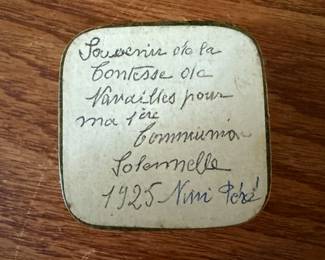 Souvenir de la
Contesse de
Navailles pour
ma 1ère
Communion
Solennelle
1925 Nini